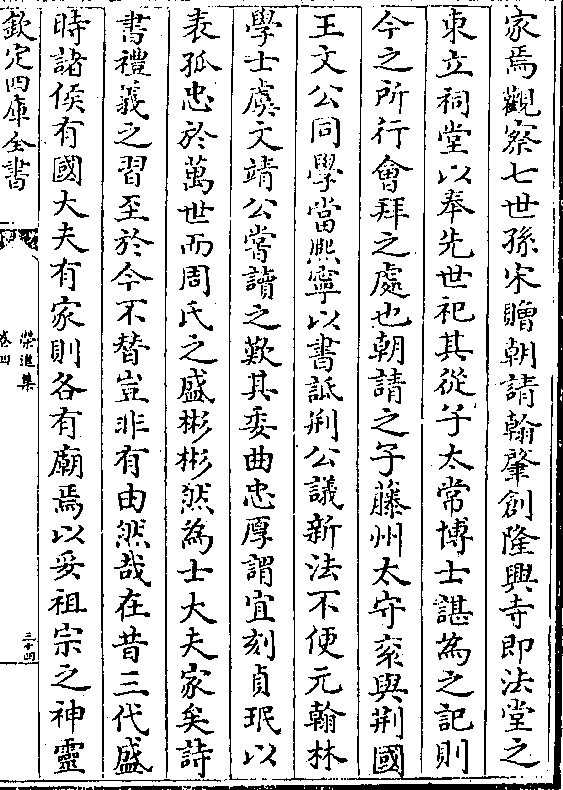 家焉觀察七世孫宋贈朝請翰肇創隆興寺即法堂之
東立祠堂以奉先世祀其從子太常博士諶為之記則
今之所行會拜之處也朝請之子藤州太守㐮與荆國
王文公同學當熈寧以書詆荆公議新法不便元翰林
學士虞文靖公嘗讀之歎其委曲忠厚謂宜刻貞珉以
表孤忠於萬世而周氏之盛彬彬然為士大夫家矣詩
書禮義之習至於今不替豈非有由然哉在昔三代盛
時諸侯有國大夫有家則各有廟焉以妥祖宗之神靈
欽定四庫全書
榮進集
卷四
三十四